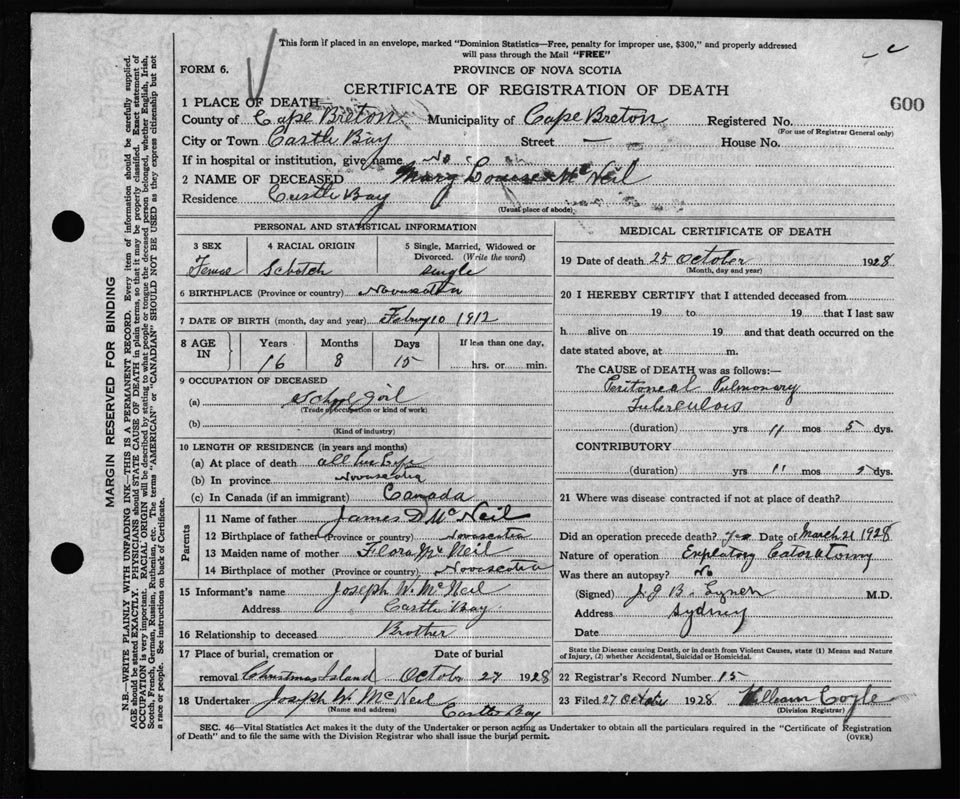 This form if placed in an envelope, marked "Dominion Statistics—Free, penalty for improper use, $300," and properly addressed
will pass through the Mail "FREE"
FORM 6.
PROVINCE OF NOVA SCOTIA
CERTIFICATE OF REGISTRATION OF DEATH
600
1 PLACE OF DEATH—
County of Cape Breton Municipality of Cape Breton Registered No.
(For use of Registrar General only)
City or Town Castle Bay Street — House No.
If in hospital or institution, give name No
2 NAME OF DECEASED Mary Louise McNeil
Residence Castle Bay
(Usual place of abode)
PERSONAL AND STATISTICAL INFORMATION
3 SEX 4 RACIAL ORIGIN 5 Single, Married, Widowed or Divorced. (Write the word)
Schotch single
6 BIRTHPLACE (Province or country) Novascotia
7 DATE OF BIRTH (month, day and year) 10 1912
8 AGE IN Years Months Days If less than one day,
16 8 15 hrs. or min.
9 OCCUPATION OF DECEASED
(a) School girl
(Trade or occupation or kind of work)
(b)
(Kind of industry)
10 LENGTH OF RESIDENCE (in years and months)
(a) At place of death all her Life
(b) In province Novascotia
(c) In Canada (if an immigrant) Canada
Parents
11 Name of father James D McNeil
12 Birthplace of father (Province or country) Novascotia
13 Maiden name of mother Flora McNeil
14 Birthplace of mother (Province or country) Novascotia
15 Informant's name Joseph W. McNeil
Address Castle Bay
16 Relationship to deceased Brother
17 Place of burial, cremation or removal Christmas Island
Date of burial October 27 1928
18 Undertaker Joseph W McNeil
(Name and address) Castle Bay
MEDICAL CERTIFICATE OF DEATH
19 Date of death 25 October 1928
(Month, day and year)
20 I HEREBY CERTIFY that I attended deceased from
19 to 19 that I last saw
h alive on 19 and that death occurred on the
date stated above, at m.
The CAUSE of DEATH was as follows:—
Peritoneal Pulmonary
Tuberculois
(duration) yrs 11 mos 5 dys.
CONTRIBUTORY
(duration) yrs 11 mos 5 dys.
21 Where was disease contracted if not at place of death?
Did an operation precede death? yes Date of March 21 1928
Nature of operation
Was there an autopsy? No
(Signed) M.D.
Address Sydney
Date
State the Disease causing Death, or in death from Violent Causes, state (1) Means and Nature of Injury, (2) whether Accidental, Suicidal or Homicidal.
22 Registrar's Record Number 15
23 Filed 27 October 1928 William Coyle
(Division Registrar)
SEC. 46—Vital Statistics Act makes it the duty of the Undertaker or person acting as Undertaker to obtain all the particulars required in the "Certificate of Registration
of Death" and to file the same with the Division Registrar who shall issue the burial permit. (OVER)
MARGIN RESERVED FOR BINDING
N.B.—WRITE PLAINLY WITH UNFADING INK—THIS IS A PERMANENT RECORD. Every item of information should be carefully supplied.
AGE should be stated EXACTLY. PHYSICIANS should STATE CAUSE OF DEATH in plain terms, so that it may be properly classified. Exact statement of
OCCUPATION is very important. RACIAL ORIGIN will be described by stating to what people or tongue the deceased person belonged, whether English, Irish,
Scotch, French, German, Russian, Ruthenian, etc. The terms "AMERICAN" or "CANADIAN" SHOULD NOT BE USED as they express citizenship but not
a race or people. See instructions on back of Certificate.